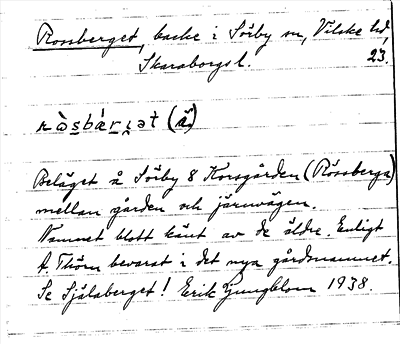 Rossberget, backe i Sörby sn, Vilske hd,
Skaraborgs l. 23.
rɷ̀sbǽri̯ət (å̈)
Beläget å Sörby 8 Korsgården (Rössberga)
mellan gården och järnvägen.
Namnet blott känt av de äldre. Enligt
A. Thörn bevarat i det nya gårdsnamnet.
Se Själaberget! Erik Ljungblom 1938.